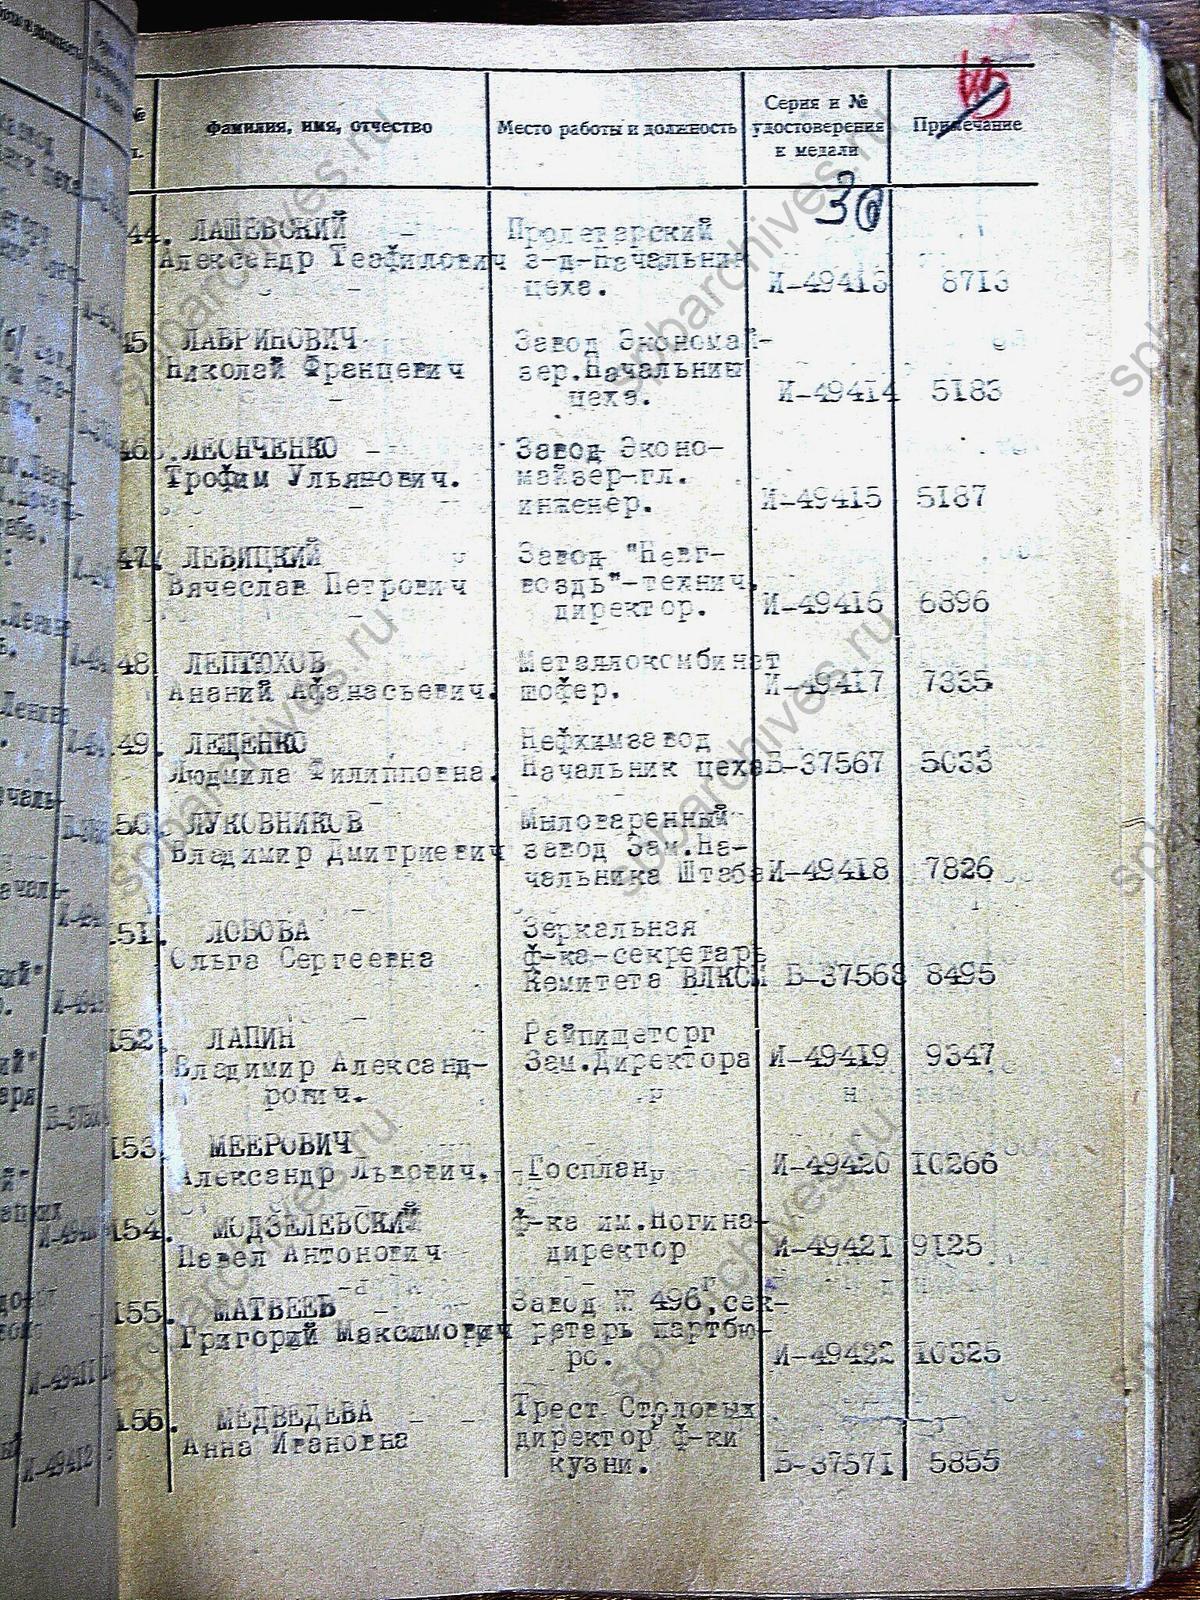 Фамилия, имя, отчество
Место работы и должность
Серия и №
удостоверения
к медали
Примечание
30
44. ЛАШЕВСКИЙ
Александр Теофилович
Пролетарский
з-д-начальник
цеха.
И-49413 8713
45 ЛАВРИНОВИЧ
Николай Францевич
Завод Экономай-
зер.Начальник
цеха.
И-49414 5183
46.ЛЕОНЧЕНКО
Трофим Ульянович.
Завод Эконо-
майзер-гл.
инженер.
И-49415 5187
47. ЛЕВИЦКИЙ
Вячеслав Петрович
Завод "Невг-
воздь"-технич.
директор.
И-49416 6896
48. ЛЕПТЮХОВ
Ананий Афанасьевич.
Металлокомбинат
шофер.
И-49417 7335
49. ЛЕЩЕНКО
Людмила Филипповна.
Нефхимзавод
Начальник цеха
Б-37567 5033
50. ЛУКОВНИКОВ
Владимир Дмитриевич
Мыловаренный
завод Зам.На-
чальника Штаба
И-49418 7826
151. ЛОБОВА
Ольга Сергеевна
Зеркальная
ф-ка-секретарь
Комитета ВЛКСМ
Б-37568 8495
152. ЛАПИН
Владимир Александ-
рович.
Райпищеторг
Зам.Директора
И-49419 9347
153. МЕЕРОВИЧ
Александр Львович.
Госплан
И-49420 10266
154. МОДЗЕЛЕВСКИЙ
Павел Антонович
ф-ка им.Ногина-
директор
И-49421 9125
155. МАТВЕЕВ
Григорий Максимович
Завод № 496,сек-
ретарь партбю-
ро.
И-49422 10325
156. МЕДВЕДЕВА
Анна Ивановна
Трест Столовых
директор ф-ки
кузни.
Б-37571 5855
spbarchives.ru